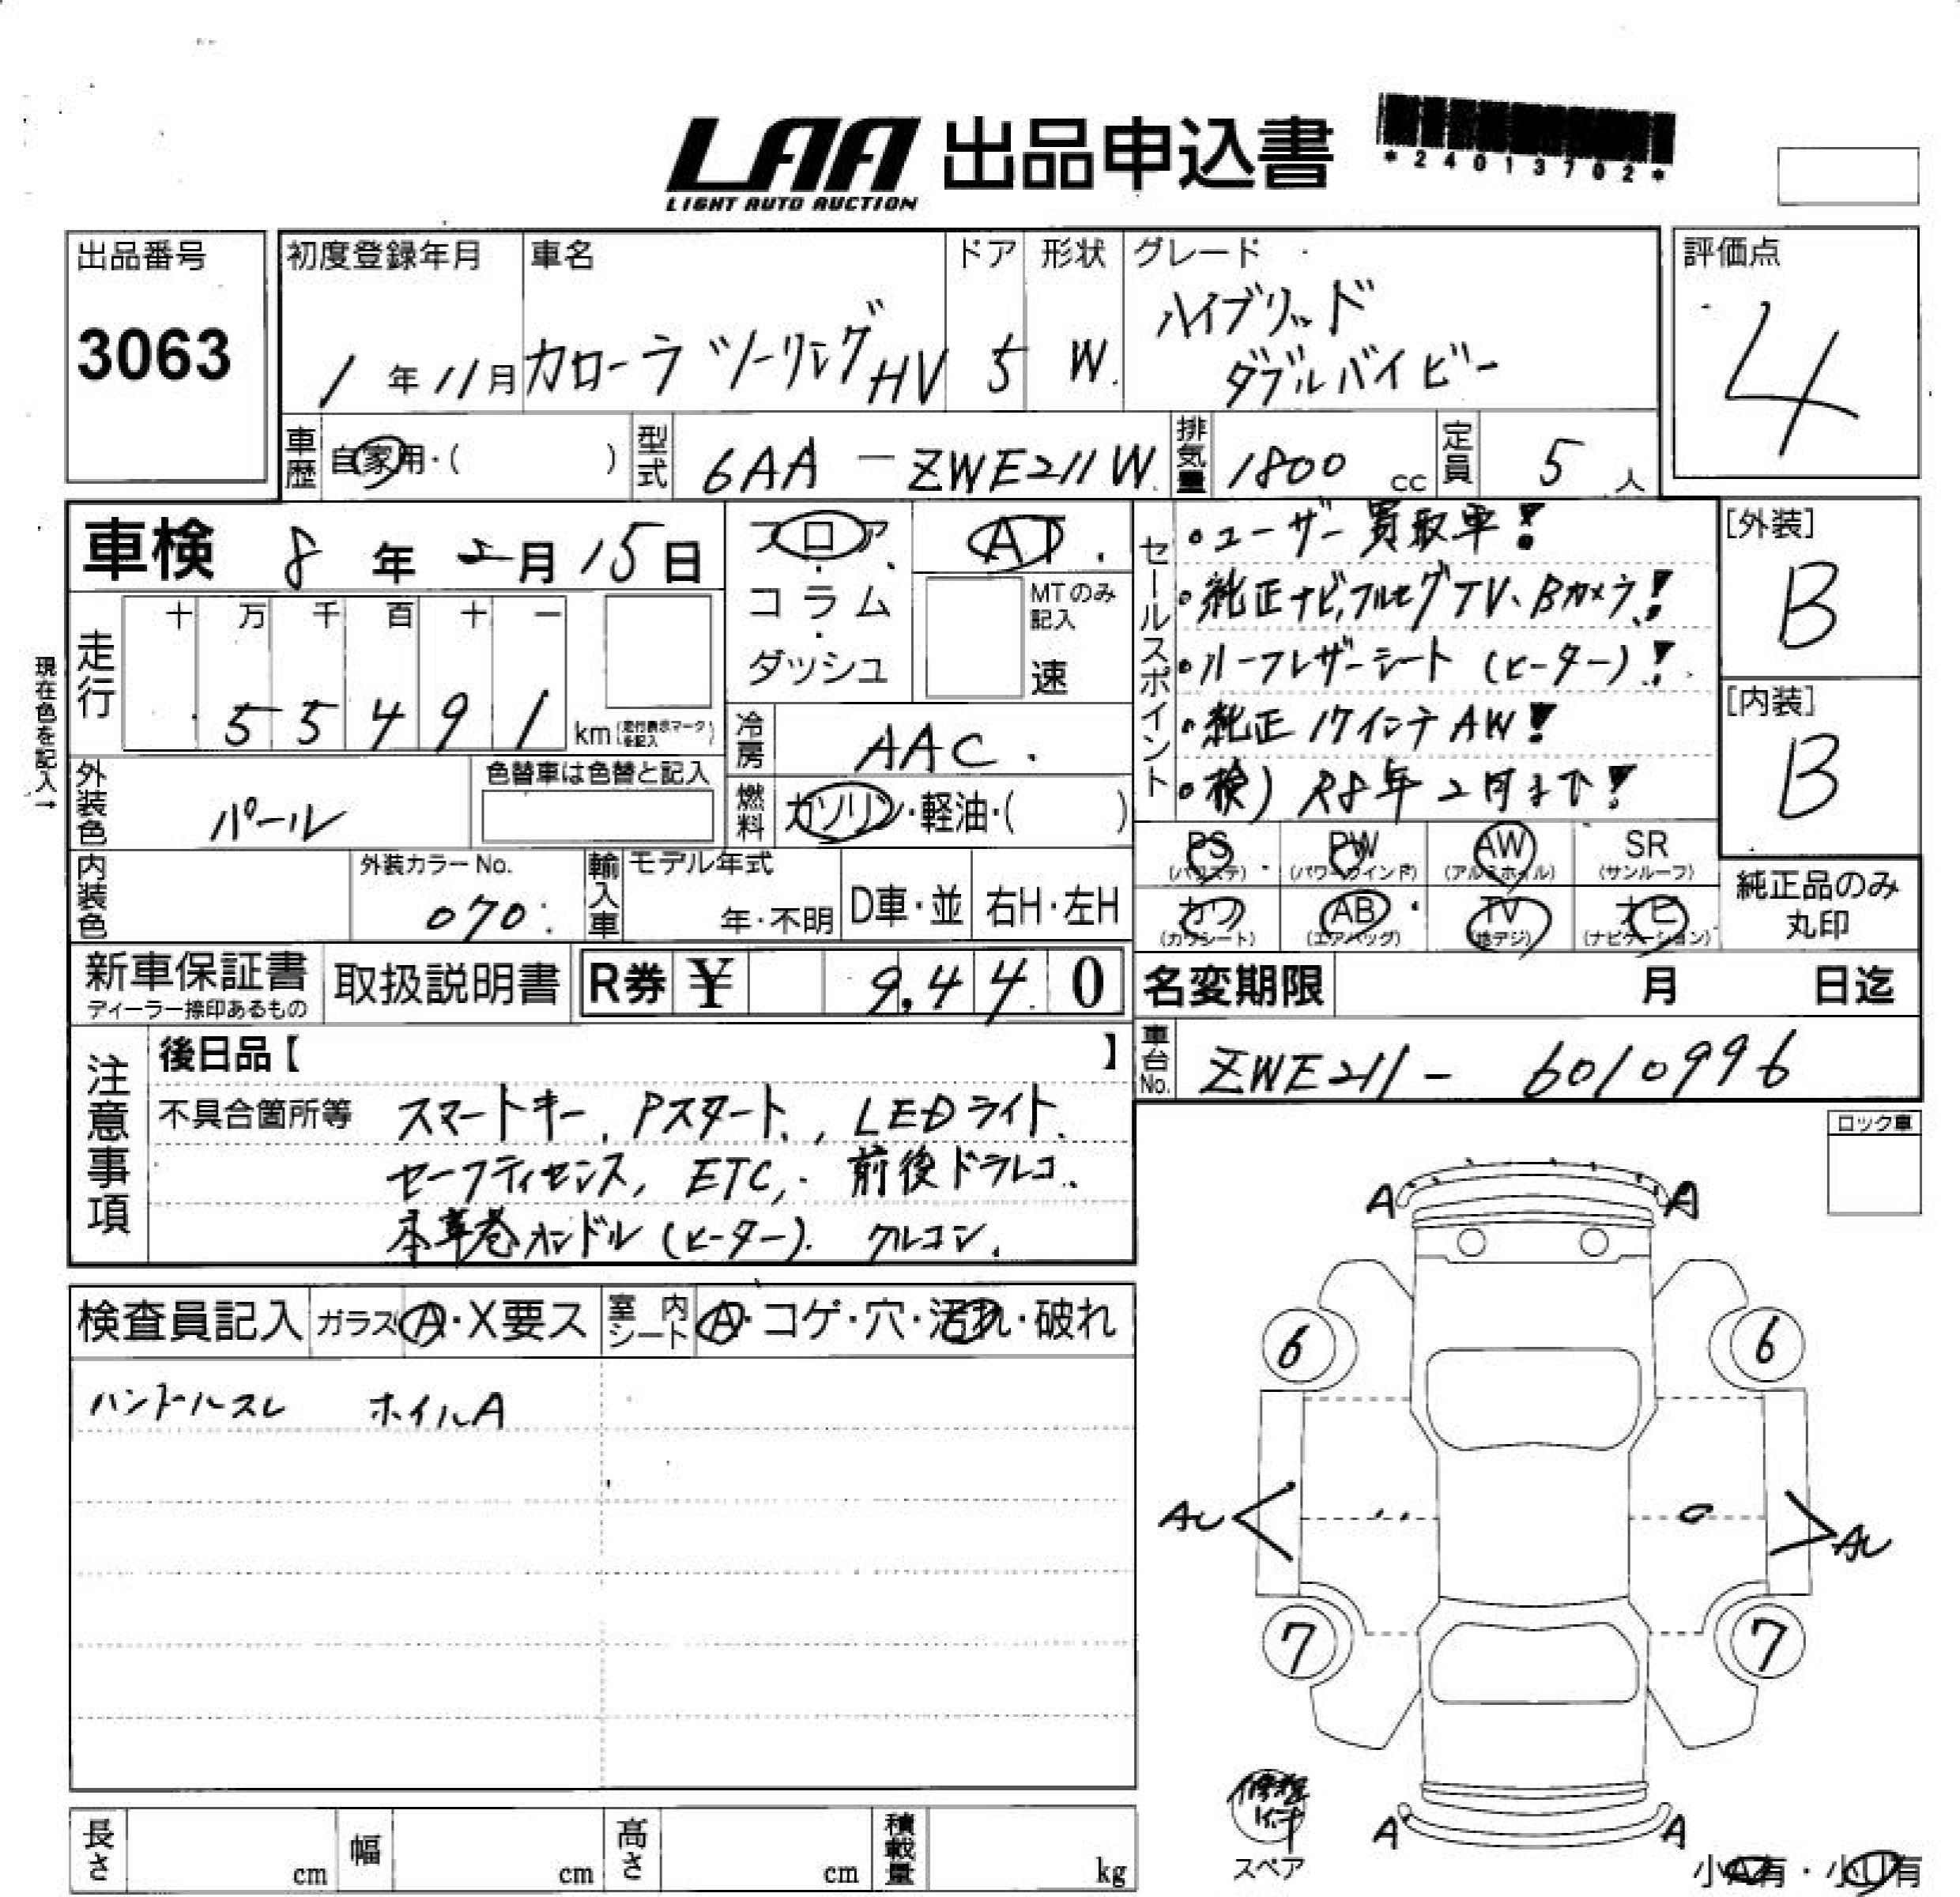 LAA 出品申込書
LIGHT AUTO AUCTION
*24013702*
出品番号
3063
初度登録年月
1年11月
車名
カローラツーリングHV
ドア
5
形状
W.
グレード
ハイブリッド
ダブルバイビー
評価点
4
車歴 自家用・( )
型式 6AA-ZWE211W.
排気量 1800 cc
定員 5人
車検 8年2月15日
フロア・
コラム
・
ダッシュ
AT.
MTのみ
記入
速
現在色を記入→
走行
十 万 千 百 十 一
5 5 4 9 1 km (走行表示マークを記入)
冷房 AAC.
外装色 パール
色替車は色替と記入
燃料 ガソリン・軽油・( )
内装色
外装カラーNo.
070
輸入車
モデル年式
年・不明
D車・並
右H・左H
新車保証書
ディーラー捺印あるもの
取扱説明書
R券 ¥ 9,440
セールスポイント
・ユーザー買取車!
・純正ナビ,フルセグTV、Bカメラ!
・ハーフレザーシート (ヒーター)!
・純正17インチAW!
・検) R8年2月まで!
[外装]
B
[内装]
B
PS
(パワステ)
PW
(パワーウインド)
AW
(アルミホイル)
SR
(サンルーフ)
カワ
(カワシート)
AB
(エアバッグ)
TV
(地デジ)
ナビ
(ナビゲーション)
純正品のみ
丸印
名変期限 月 日迄
車台No. ZWE211-6010996
注意事項
後日品【 】
不具合箇所等 スマートキー, Pスタート, LEDライト.
セーフティセンス, ETC, 前後ドラレコ.
本革巻ハンドル(ヒーター). クルコン.
ロック車
検査員記入
ガラス A・X要ス
室内シート A・コゲ・穴・汚れ・破れ
ハンドルスレ ホイルA
A A
6 6
AU AU
7 7
A A
修理キット
スペア
小A有・小U有
長さ cm
幅 cm
高さ cm
積載量 kg